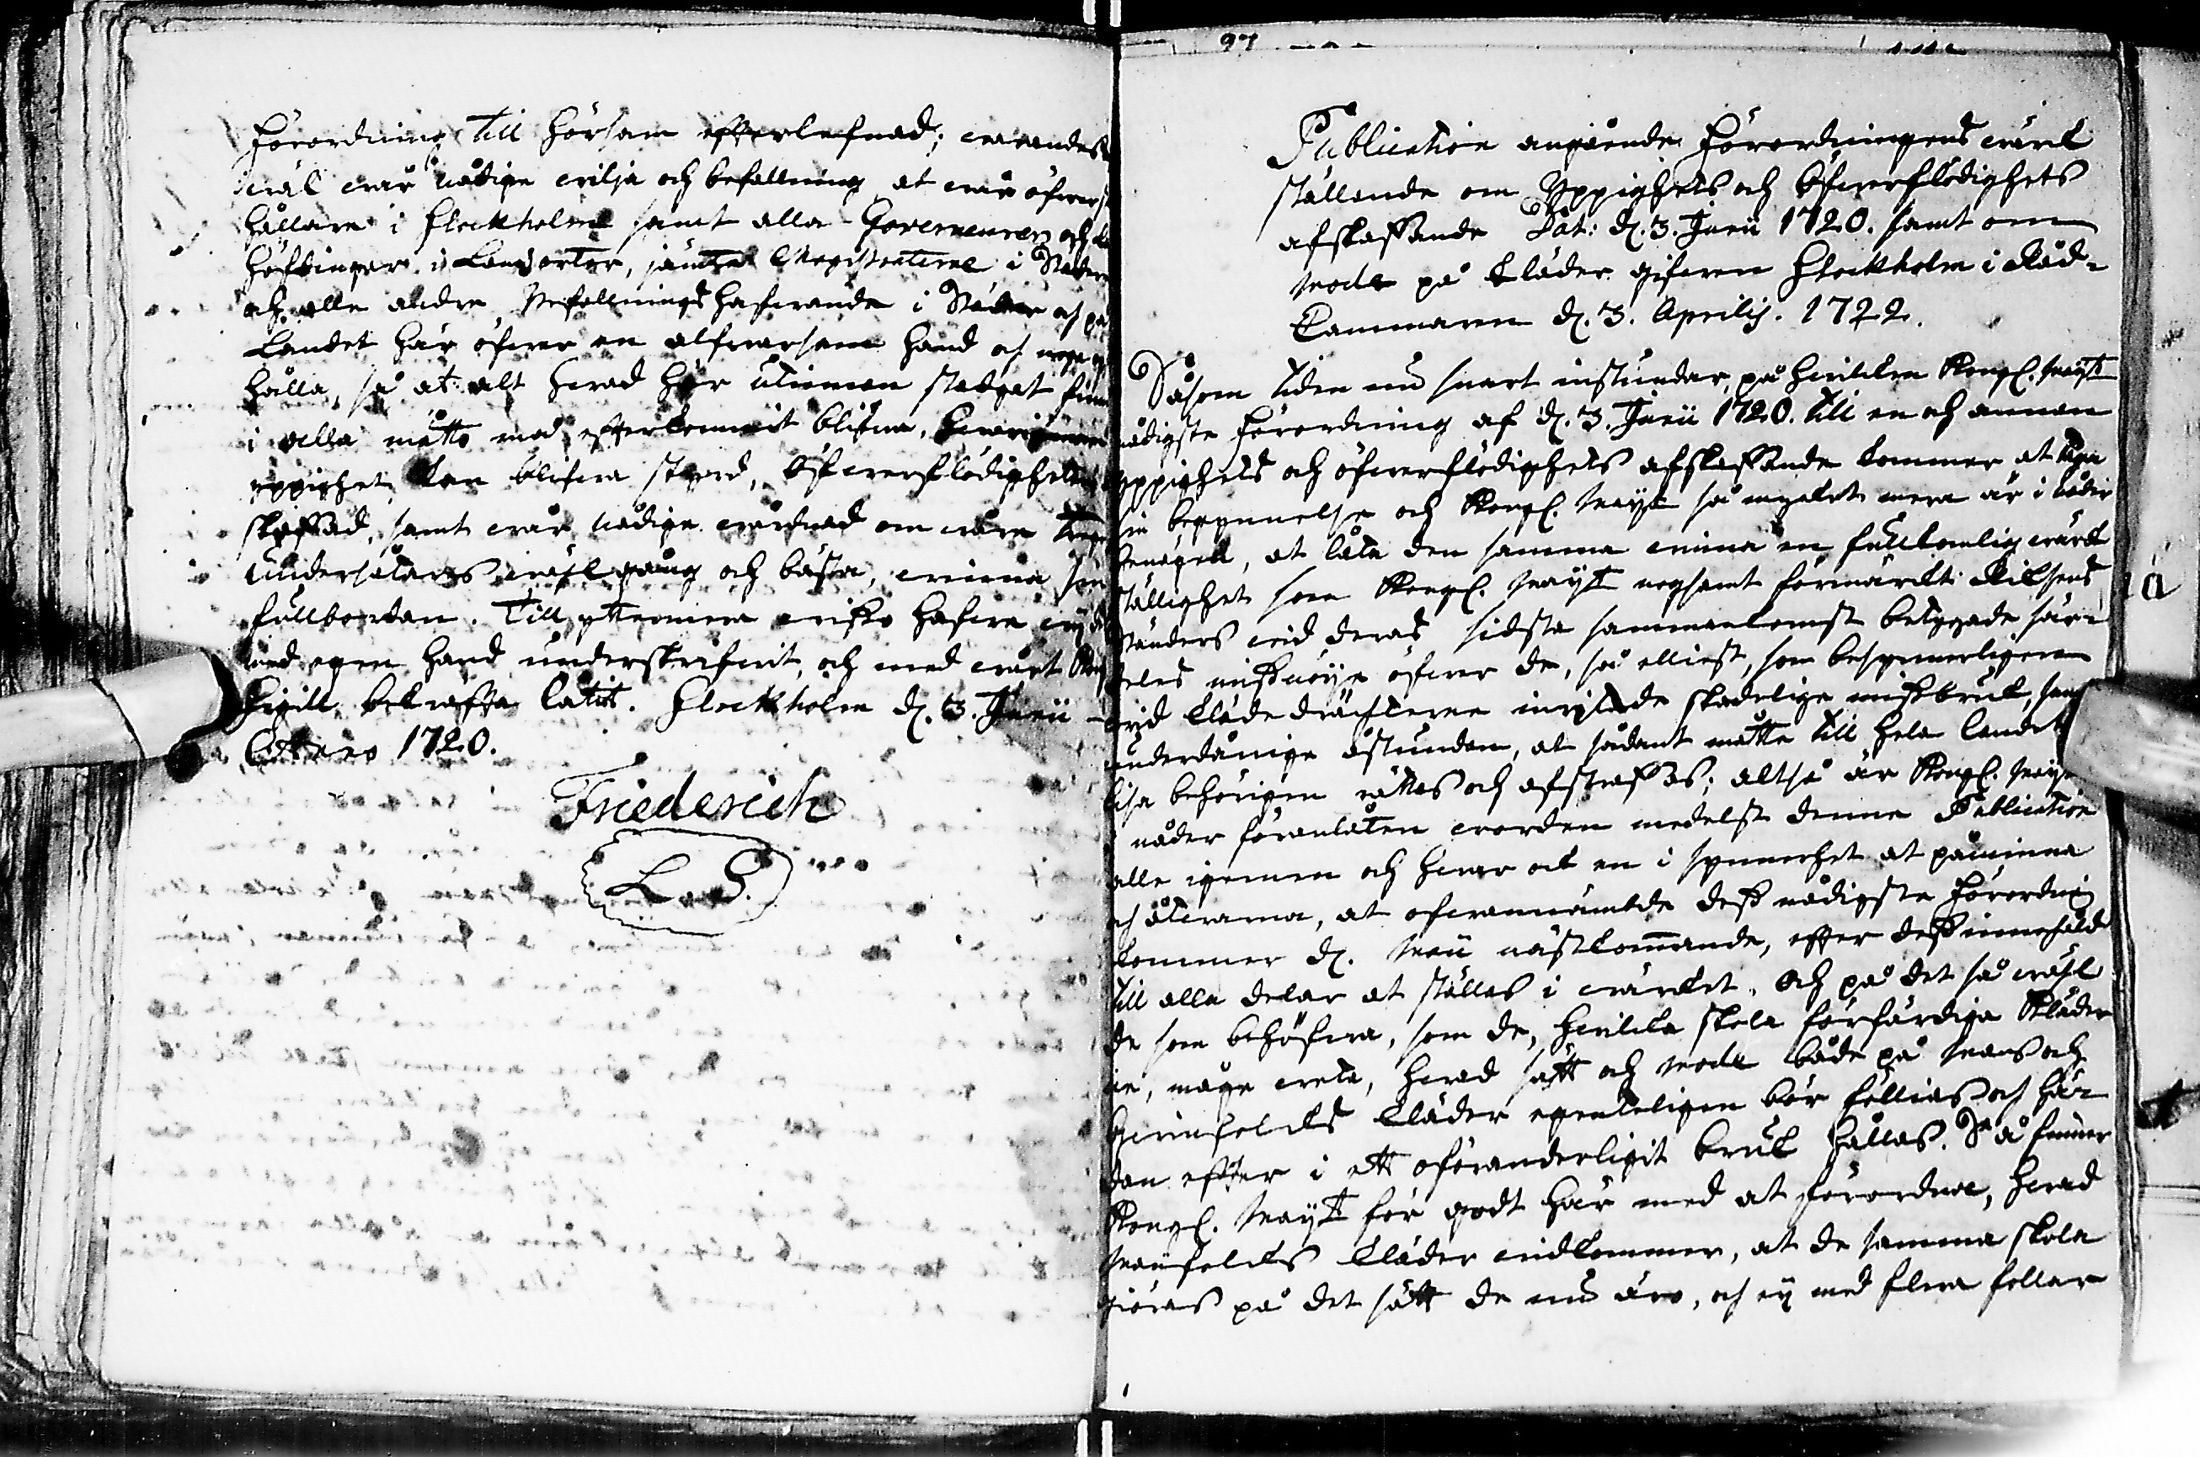 Förordning till hörsam efterlefnad; warandes
wäl wår nådige wilja och befallning at wår öfwerst
hållare i Stockholm samt alla Gouverneurer och
höfdingar i Landzorter, jämte Magistraterne i Städer
och alle andre Befallningshafwande i Städer och på
Landet här öfwer en alfwarsam hand och noga
hålla, så at alt hwad här utinnan stadgat finnes
i alla måtto må efterkommit blifwa,
yppighet kan blifwa styrd, Öfwerflödigheten
skaffad, samt wår nådige wårdnad om wåra trogne
Undersåtares wälgång och bästa, winna sin
fullbordan. Till yttermera wisso hafwa wij
med egen hand underskrifwit, och med wårt Kongl
Sigill bekräfta låtit. Stockholm d. 3. Junii
Anno 1720.
Friederich
L. S.
97
Publication angående Förordningens wärck
ställande om Yppighets och Öfwerflödighets
afskaffande Dat: d. 3. Junii 1720. samt om
Mode på Kläder gifwen Stockholm i Råd-
Cammaren d. 3. Aprilis. 1722.
Såsom tiden nu snart instundar, på hwilcken Kongl. Mayt
nådigste Förordning af d. 3. Junii 1720. till en och annan
Yppighets och öfwerflödighets afskaffande kommer at taga
sin begynnelse och Kongl. Mayt så mycket mera är i nåder
benägen, at låta den samma winna en fullkomlig wärck
ställighet som Kongl. Mayt nogsamt förmärckt Riksens
Ständers wid deras sidsta sammankomst betygade sär-
deles missnöye öfwer de, så elliest, som besynnerligen
wid klädedräckterne inritade skadelige missbruk, samt
underdånige åstundan, at sådant måtte till hela landets
bästa behörigen rättas och afskaffas; altså är Kongl. Mayt
i nåder föranlåten worden medelst denna Publication
alle igemen och hwar och en i synnerhet at påminna
och åtwarna, at ofwannämbde dess nådigste Förordning
kommer d. Maii nästkommande, efter dess innehåld
till alla delar at ställas i wärcket. Och på det så wäl
de som behöfwa, som de, hwilcka skola förfärdiga Kläder
ne, måge weta, hwad sätt och mode både på Mans och
Qwinfolcks Kläder egenteligen bör föllias och här
dan efter i ett oföranderligit bruk hållas. Så finner
Kongl. Mayt för godt här med at förordna, hwad
Manfolcks Kläder widkommer, at de samma skola
giöras på det sätt de nu äro, och ey med flera fållar